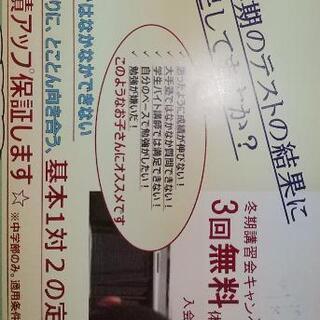 期のテストの結果に
足してますか?
✓思ったように成績が伸びない!
✓大手塾ではなかなか質問できない!
✓学生バイト講師では満足できない!
✓自分のペースで勉強がしたい!
✓勉強が嫌いだ!
このようなお子さんにオススメです
冬期講習会キャン
3回無料体
入会
はなかなかできない
りに、とことん向き合う、基本1対2の定
績アップ保証します☆ ※中学部のみ。適用条件